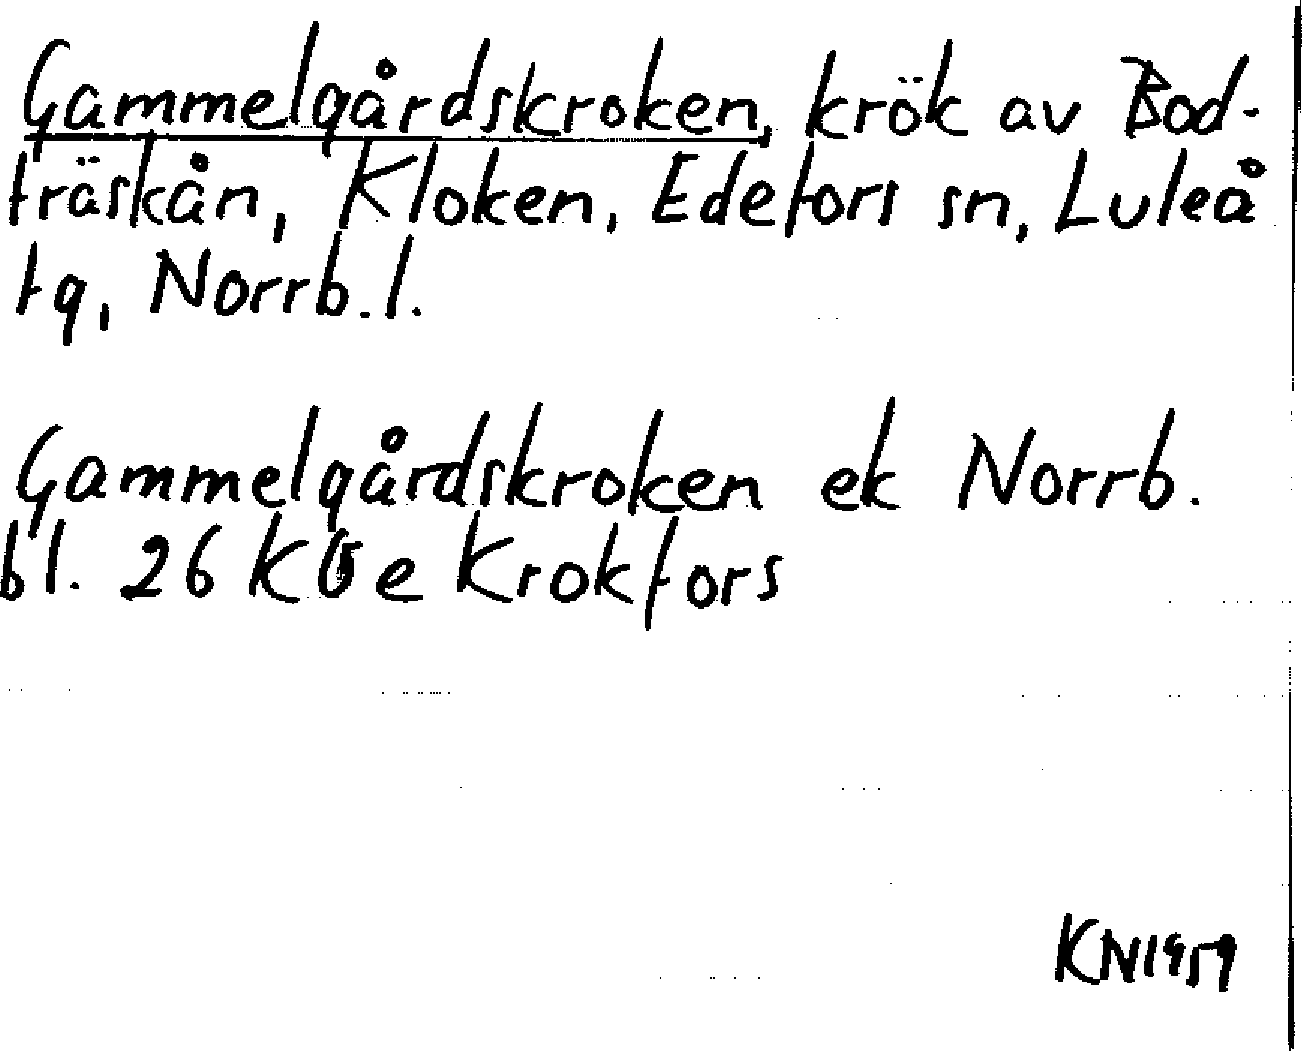 Gammelgårdskroken, krök av Bod-
träskån, Kloken, Edefors sn, Luleå
tg, Norrb.l.
Gammelgårdskroken ek Norrb.
bl. 26 K e Krokfors
KN 1959